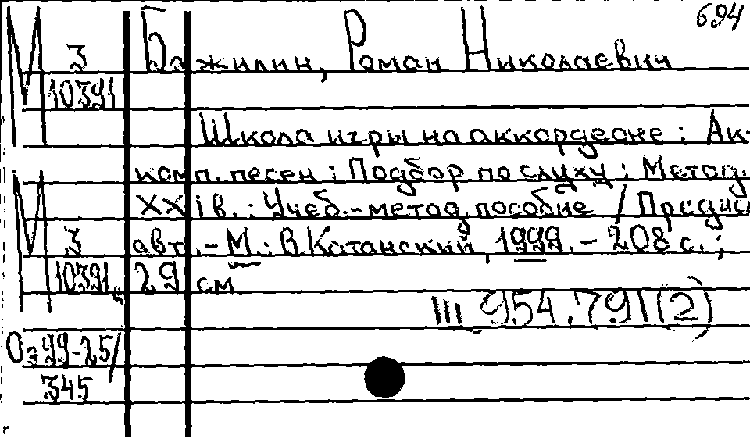 694
М З Бажилин, Роман Николаевич
10391
Школа игры на аккордеоне : Ак-
комп. песен : Подбор по слуху : Метод.
XXI в. : Учеб.-метод. пособие / Предис
М З авт. - М. : В. Катанский, 1999. - 208 с. ;
10391 29 см
III 954.791(2)
Оз 99-25/
345